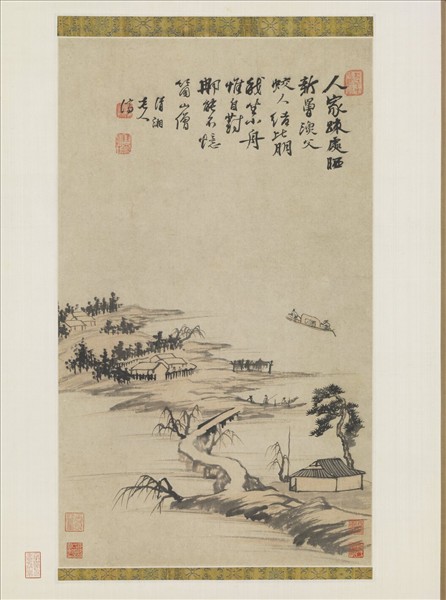 人家疎處晒
新罾漁父
鮫人結比朋
我坐小舟
惟自對
那能不憶
箇山僧
清湘
老人
濟